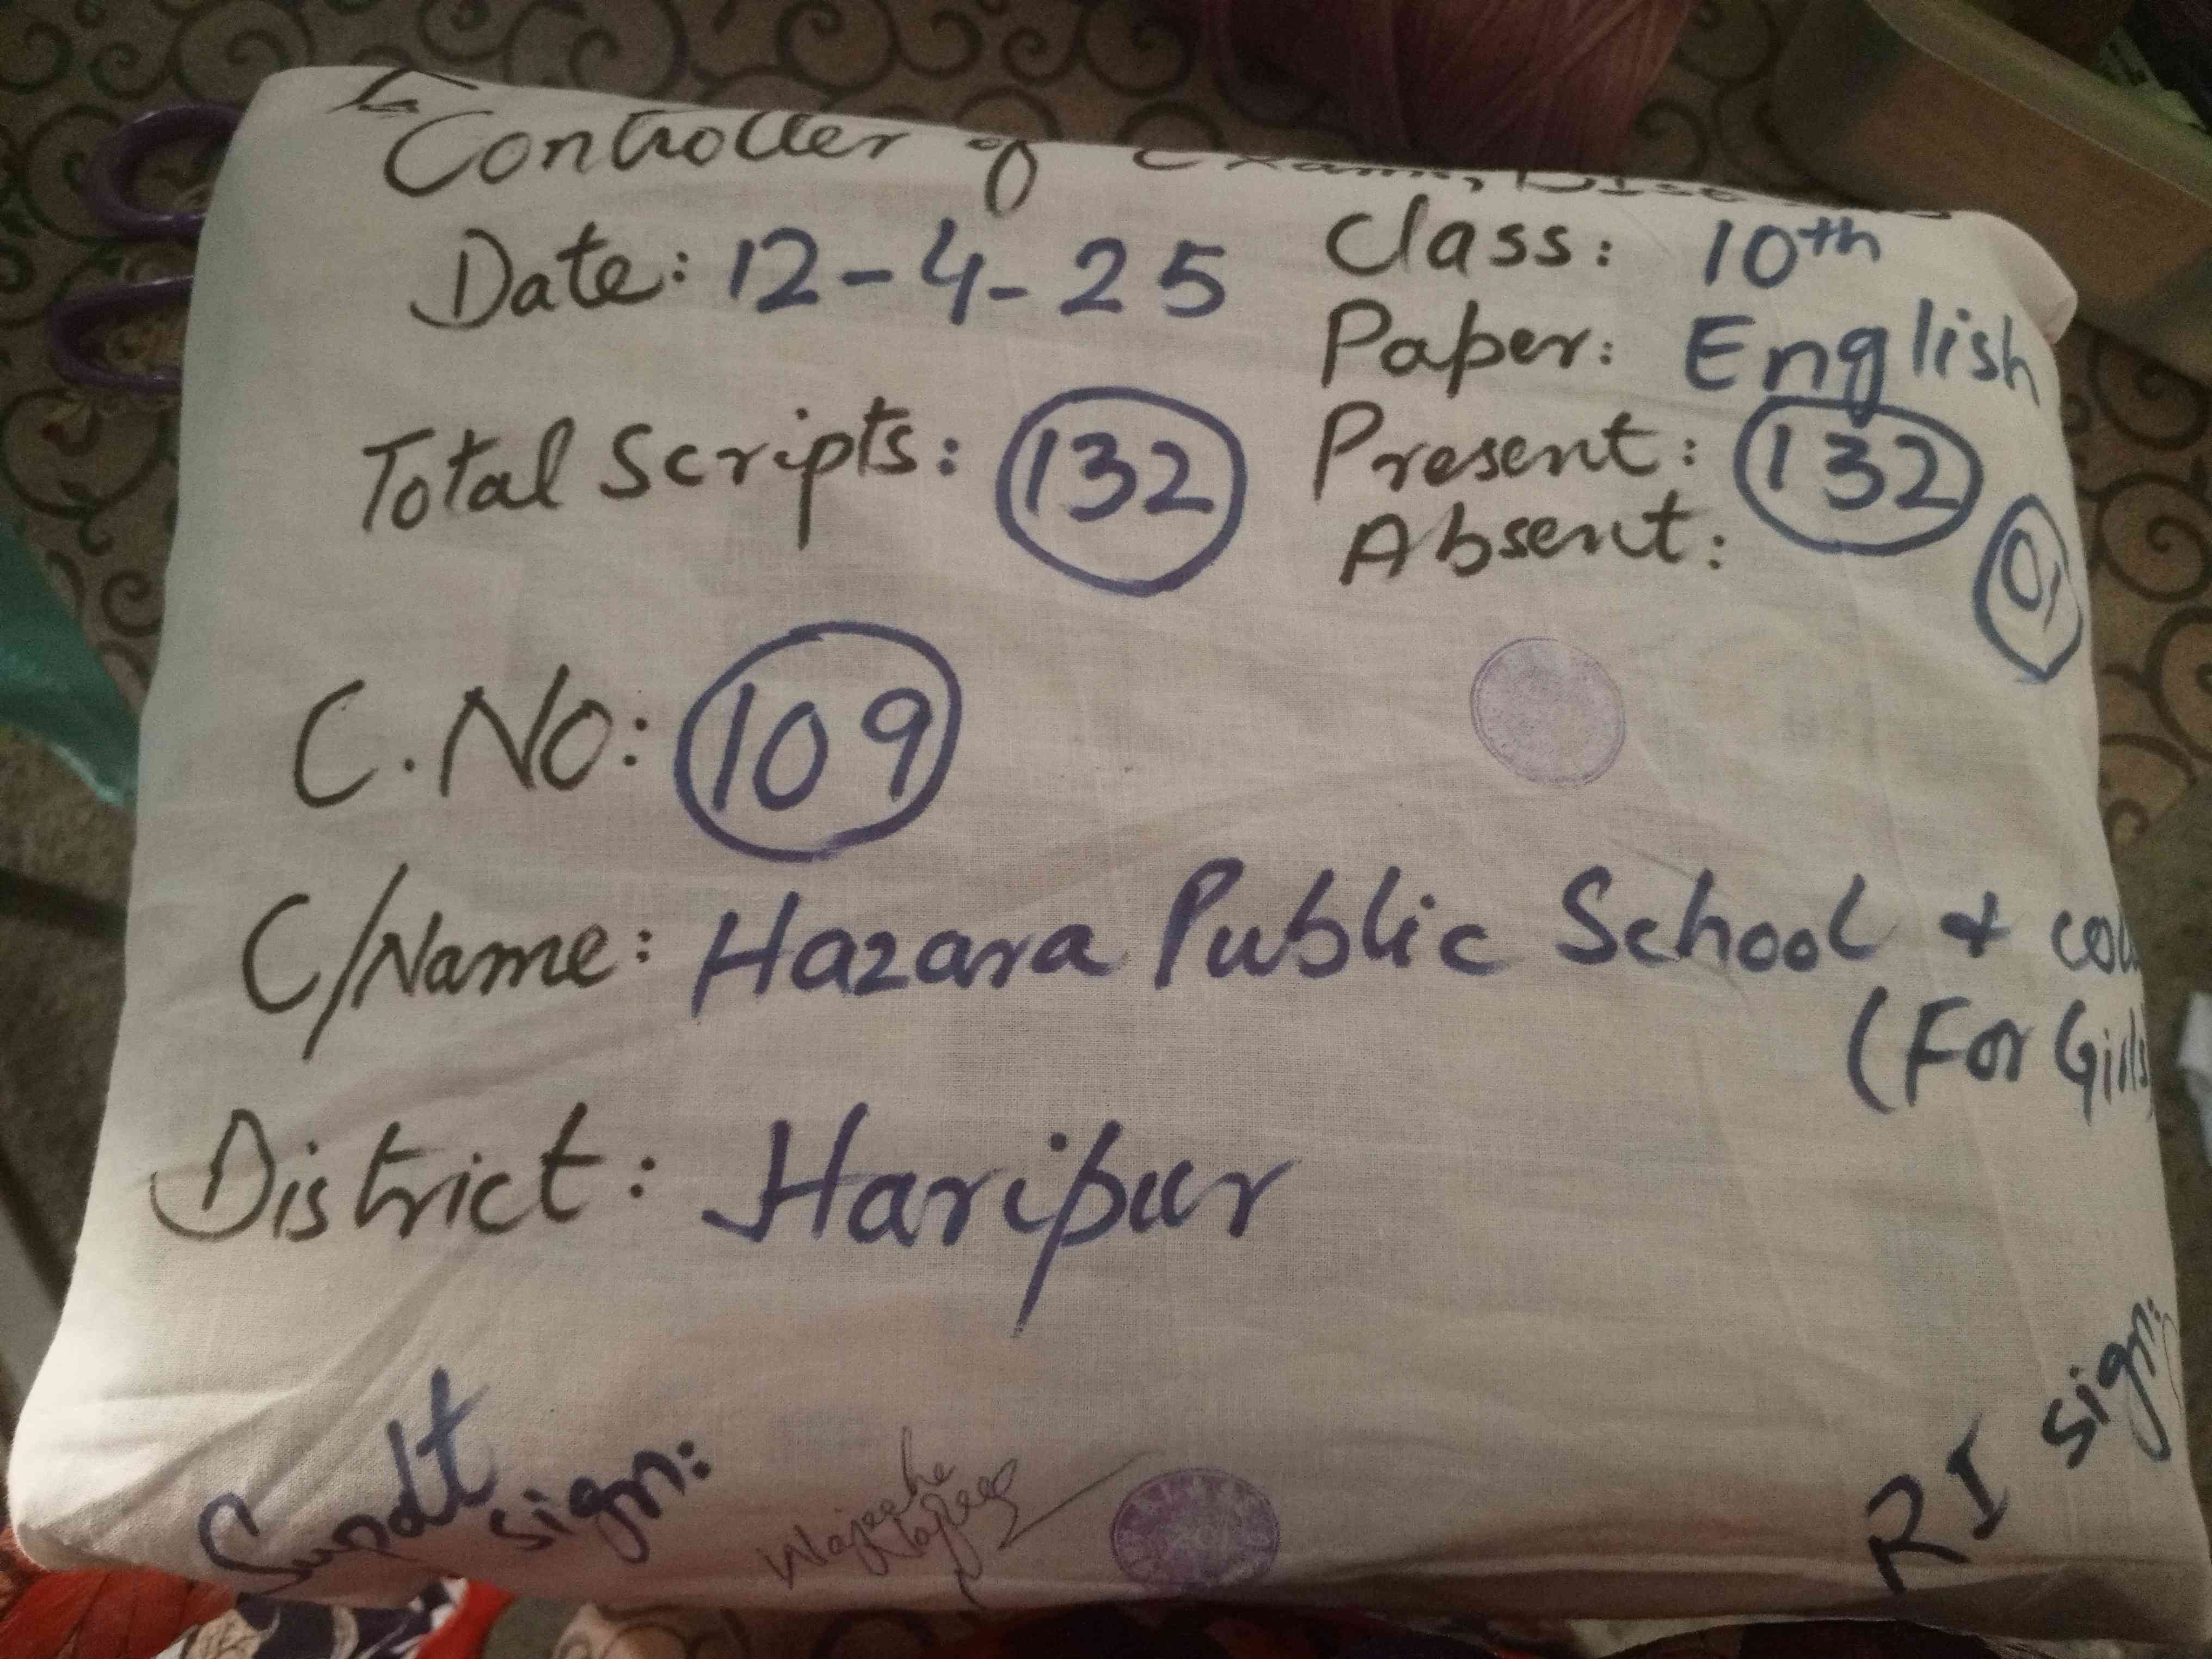 To
Controller of Exams,
Date: 12-4-25
Class: 10th
Paper: English
Total Scripts: 132
Present: 132
Absent: 01
C.No: 109
C/Name: Hazara Public School & Coll
(For Girls
District: Haripur
Supdt sign:
RI sign: